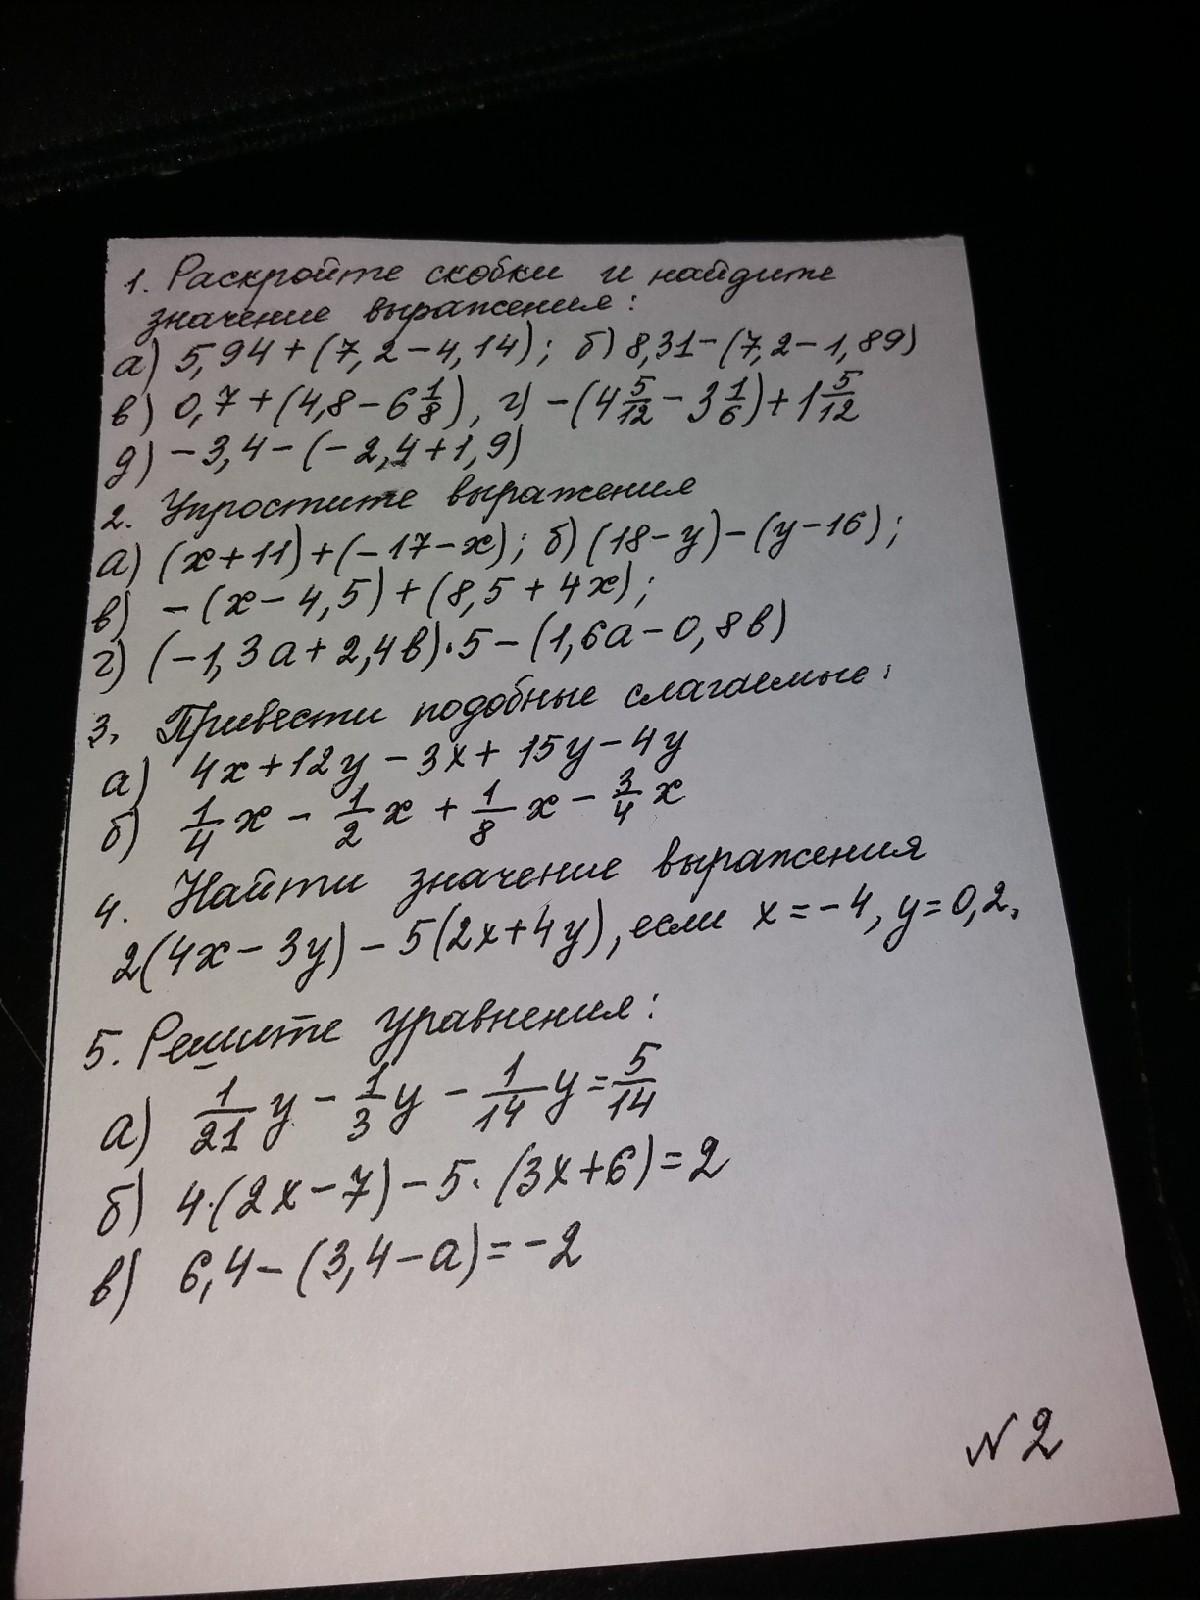 1. Раскройте скобки и найдите
значение выражения:
а) 5,94+(7,2-4,14); б) 8,31-(7,2-1,89)
в) 0,7+(4,8-6 1/8), г) -(4 5/12 - 3 1/6)+1 5/12
д) -3,4-(-2,4+1,9)
2. Упростите выражения
а) (x+11)+(-17-x); б) (18-y)-(y-16);
в) -(x-4,5)+(8,5+4x);
г) (-1,3а+2,4в)·5-(1,6а-0,8в)
3. Привести подобные слагаемые:
а) 4x+12y-3x+15y-4y
б) 1/4 x - 1/2 x + 1/8 x - 3/4 x
4. Найти значение выражения
2(4x-3y)-5(2x+4y), если x=-4, y=0,2.
5. Решите уравнения:
а) 1/21 y - 1/3 y - 1/14 y = 5/14
б) 4·(2x-7)-5·(3x+6)=2
в) 6,4-(3,4-а)=-2
N2